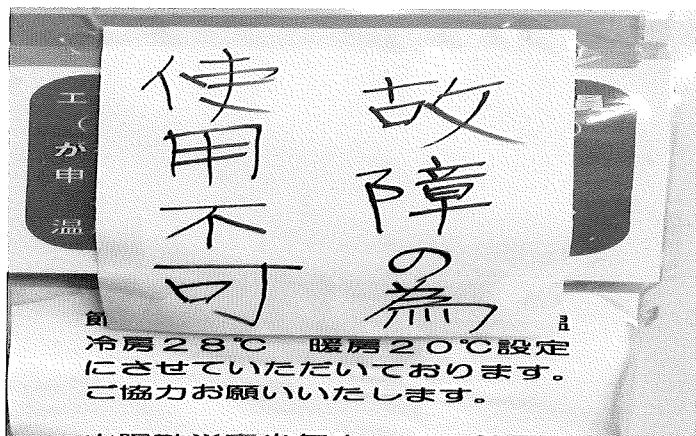 故障の為
使用不可
エ
（
が
申
温
冷房２８℃　暖房２０℃設定
にさせていただいております。
ご協力お願いいたします。